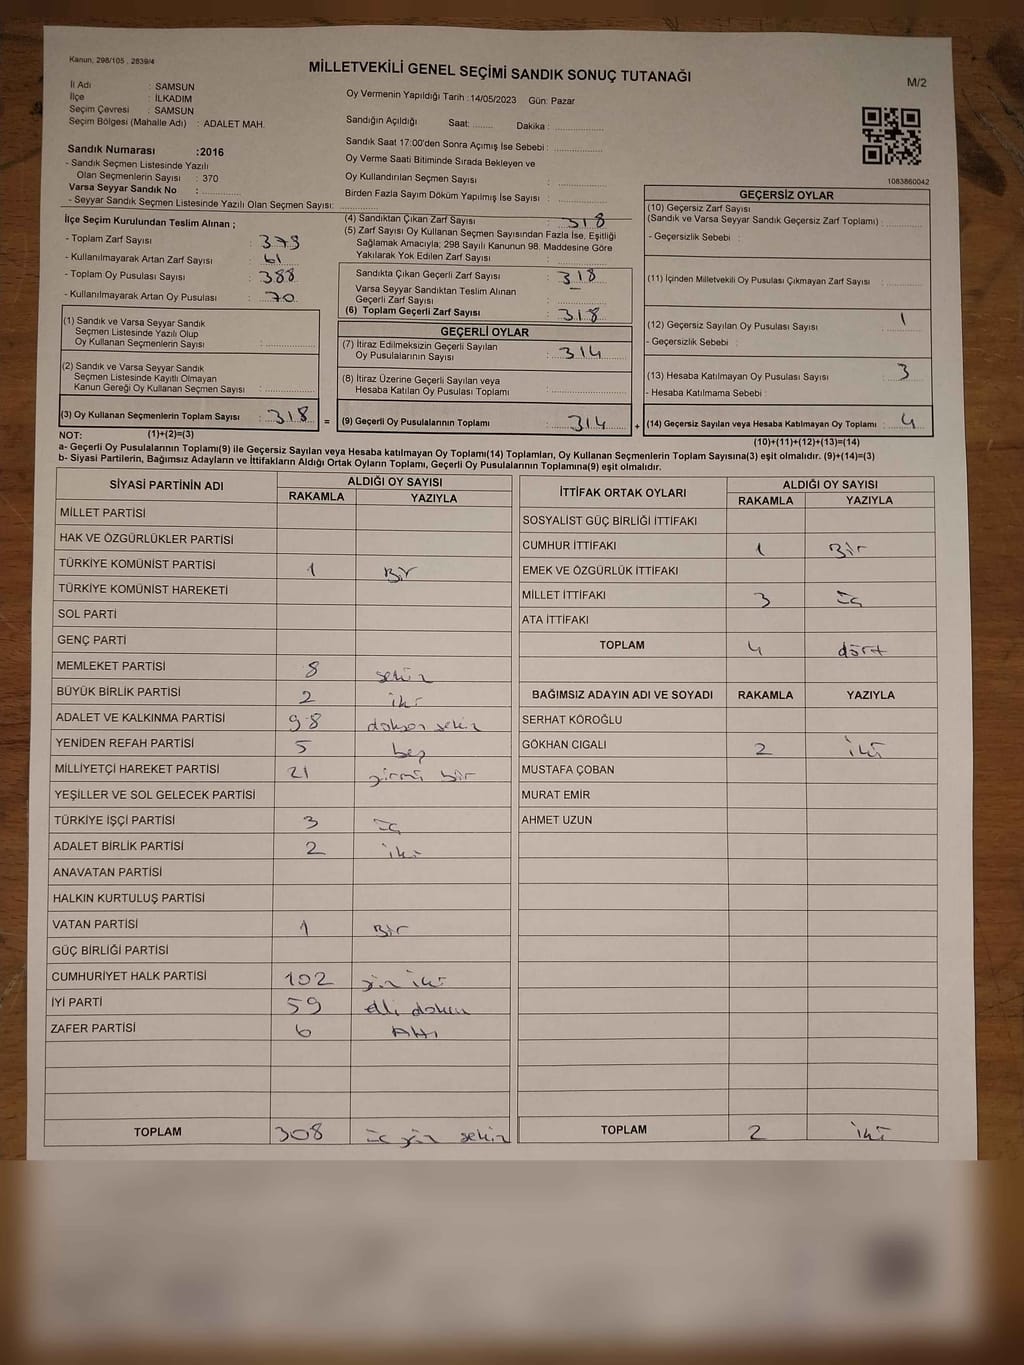 Kanun, 298/105 , 2839/4
MİLLETVEKİLİ GENEL SEÇİMİ SANDIK SONUÇ TUTANAĞI
M/2
İl Adı : SAMSUN
İlçe : İLKADIM
Seçim Çevresi : SAMSUN
Seçim Bölgesi (Mahalle Adı) : ADALET MAH.
Oy Vermenin Yapıldığı Tarih :14/05/2023 Gün: Pazar
Sandığın Açıldığı Saat: ........ Dakika : ................
Sandık Saat 17:00'den Sonra Açımış İse Sebebi : ................
Oy Verme Saati Bitiminde Sırada Bekleyen ve
Oy Kullandırılan Seçmen Sayısı : ................
Birden Fazla Sayım Döküm Yapılmış İse Sayısı : ................
Sandık Numarası :2016
- Sandık Seçmen Listesinde Yazılı
Olan Seçmenlerin Sayısı : 370
Varsa Seyyar Sandık No : ................
- Seyyar Sandık Seçmen Listesinde Yazılı Olan Seçmen Sayısı: ................
1083860042
İlçe Seçim Kurulundan Teslim Alınan ;
- Toplam Zarf Sayısı : 379
- Kullanılmayarak Artan Zarf Sayısı : 61
- Toplam Oy Pusulası Sayısı : 388
- Kullanılmayarak Artan Oy Pusulası : 70
(1) Sandık ve Varsa Seyyar Sandık
Seçmen Listesinde Yazılı Olup
Oy Kullanan Seçmenlerin Sayısı : ................
(2) Sandık ve Varsa Seyyar Sandık
Seçmen Listesinde Kayıtlı Olmayan
Kanun Gereği Oy Kullanan Seçmen Sayısı : ................
(3) Oy Kullanan Seçmenlerin Toplam Sayısı : 318 =
(1)+(2)=(3)
(4) Sandıktan Çıkan Zarf Sayısı : 318
(5) Zarf Sayısı Oy Kullanan Seçmen Sayısından Fazla İse, Eşitliği
Sağlamak Amacıyla; 298 Sayılı Kanunun 98. Maddesine Göre
Yakılarak Yok Edilen Zarf Sayısı : ................
Sandıkta Çıkan Geçerli Zarf Sayısı : 318
Varsa Seyyar Sandıktan Teslim Alınan
Geçerli Zarf Sayısı : –
(6) Toplam Geçerli Zarf Sayısı : 318
GEÇERLİ OYLAR
(7) İtiraz Edilmeksizin Geçerli Sayılan
Oy Pusulalarının Sayısı : 314
(8) İtiraz Üzerine Geçerli Sayılan veya
Hesaba Katılan Oy Pusulası Toplamı : ................
(9) Geçerli Oy Pusulalarının Toplamı : 314 +
GEÇERSİZ OYLAR
(10) Geçersiz Zarf Sayısı
(Sandık ve Varsa Seyyar Sandık Geçersiz Zarf Toplamı) : ................
- Geçersizlik Sebebi :
(11) İçinden Milletvekili Oy Pusulası Çıkmayan Zarf Sayısı : ................
(12) Geçersiz Sayılan Oy Pusulası Sayısı : 1
- Geçersizlik Sebebi :
(13) Hesaba Katılmayan Oy Pusulası Sayısı : 3
- Hesaba Katılmama Sebebi :
(14) Geçersiz Sayılan veya Hesaba Katılmayan Oy Toplamı : 4
(10)+(11)+(12)+(13)=(14)
NOT:
a- Geçerli Oy Pusulalarının Toplamı(9) ile Geçersiz Sayılan veya Hesaba katılmayan Oy Toplamı(14) Toplamları, Oy Kullanan Seçmenlerin Toplam Sayısına(3) eşit olmalıdır. (9)+(14)=(3)
b- Siyasi Partilerin, Bağımsız Adayların ve İttifakların Aldığı Ortak Oyların Toplamı, Geçerli Oy Pusulalarının Toplamına(9) eşit olmalıdır.
SİYASİ PARTİNİN ADI ALDIĞI OY SAYISI
RAKAMLA YAZIYLA
MİLLET PARTİSİ
HAK VE ÖZGÜRLÜKLER PARTİSİ
TÜRKİYE KOMÜNİST PARTİSİ 1 Bir
TÜRKİYE KOMÜNİST HAREKETİ
SOL PARTİ
GENÇ PARTİ
MEMLEKET PARTİSİ 8 sekiz
BÜYÜK BİRLİK PARTİSİ 2 iki
ADALET VE KALKINMA PARTİSİ 98 doksan sekiz
YENİDEN REFAH PARTİSİ 5 beş
MİLLİYETÇİ HAREKET PARTİSİ 21 yirmi bir
YEŞİLLER VE SOL GELECEK PARTİSİ
TÜRKİYE İŞÇİ PARTİSİ 3 üç
ADALET BİRLİK PARTİSİ 2 iki
ANAVATAN PARTİSİ
HALKIN KURTULUŞ PARTİSİ
VATAN PARTİSİ 1 Bir
GÜÇ BİRLİĞİ PARTİSİ
CUMHURİYET HALK PARTİSİ 102 yüz iki
İYİ PARTİ 59 elli dokuz
ZAFER PARTİSİ 6 Altı
TOPLAM 308 üç yüz sekiz
İTTİFAK ORTAK OYLARI ALDIĞI OY SAYISI
RAKAMLA YAZIYLA
SOSYALİST GÜÇ BİRLİĞİ İTTİFAKI
CUMHUR İTTİFAKI 1 Bir
EMEK VE ÖZGÜRLÜK İTTİFAKI
MİLLET İTTİFAKI 3 üç
ATA İTTİFAKI
TOPLAM 4 dört
BAĞIMSIZ ADAYIN ADI VE SOYADI RAKAMLA YAZIYLA
SERHAT KÖROĞLU
GÖKHAN CIGALI 2 iki
MUSTAFA ÇOBAN
MURAT EMİR
AHMET UZUN
TOPLAM 2 iki